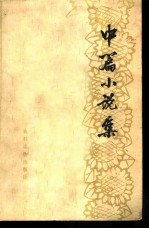 中篇小说集